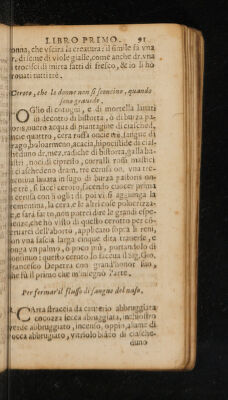 LIBRO PRIMO. 91
donna, che uscirà la creatura: il simile fa vna
dr. di seme di viole gialle, come anche dr. vna
trocisci di mirra fatti di fresco, & io li hò
trouati tutti trè.
Ceroto, che le donne non si sconcino, quando
sono grauide.
OGlio di cotogni, e di mortella lauati
in decotto di bistorta, ò di burza pa
storis, ouero acqua di piantagine di ciasched.
oncie quattro, cera rossa oncie sangue di
drago, boloarmeno, acacia, hipocistide di cia
scheduno dr. mez. radiche di bistorta, galla
noci di cipresso, coralli rossi mastici
di ciaschedeno dram. tre cerusa on. vna tre-
mentina lauata in sugo di burza pastoris on-
cie trè, si facci ceroto, facendo cuocer prima
la cerusa con li ogli di poi vi si aggiunga la
trementina, la cera e le altre cose poluerizza-
te, e sarà fatto, non potrei dire le grandi espe-
rienze, che hò visto di questo cerotto per con-
seruatiò dell'aborto, applicato sopra li reni,
con vna fascia larga cinque dita trauerse, e
longa vn palmo, ò poco più, portandolo di
continuo; questo ceroto lo faceua il Sig. Gio.
Francesco Depetra con grand'honor suo,
che fù il primo che m'insegnò l'arte.
Per fermar'il flusso di sangue del naso.
CArta straccia da cimerio abbruggiata
concozza secca abbruggiata, inchiostro
verde abbruggiato, incenso, oppio, alume di
rocca abbrugiato, vitriolo biāco di ciasche-
duno